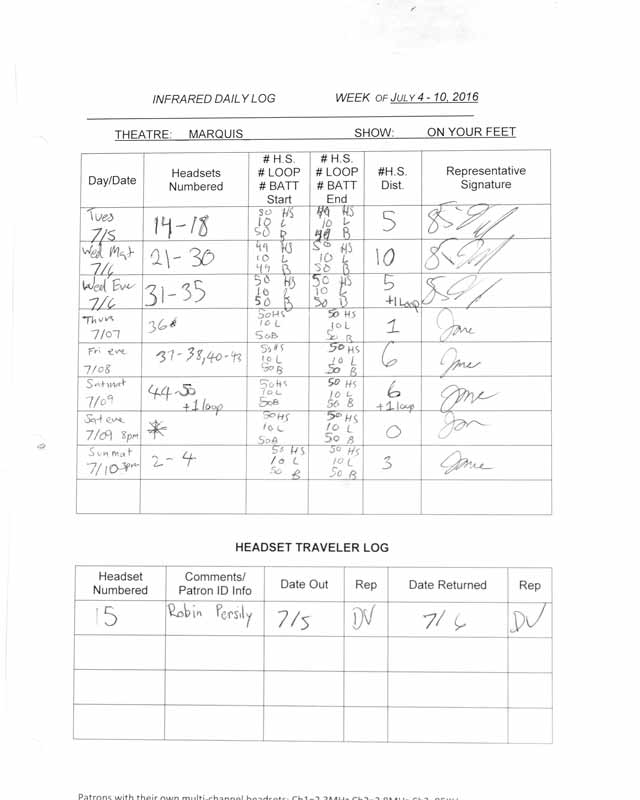 INFRARED DAILY LOG WEEK OF JULY 4 - 10, 2016
THEATRE: MARQUIS SHOW: ON YOUR FEET
Day/Date Headsets Numbered # H.S. # LOOP # BATT Start # H.S. # LOOP # BATT End #H.S. Dist. Representative Signature
Tues 7/5 14-18 50 HS 10 L 50 B 49 HS 10 L 49 B 5
Wed Mat 7/6 21-30 49 HS 10 L 49 B 50 HS 10 L 50 B 10
Wed Eve 7/6 31-35 50 HS 10 L 50 B 50 HS 10 L 50 B 5 +1 loop
Thurs 7/07 36 50HS 10L 50B 50 HS 10L 50 B 1 Jane
Fri eve 7/08 37-38,40-43 50HS 10L 50B 50 HS 10 L 50 B 6 Jane
Sat mat 7/09 44-50 +1 loop 50HS 10L 50B 50 HS 10 L 50 B 6 +1 loop Jane
Sat eve 7/09 8pm 50HS 10L 50B 50 HS 10 L 50 B 0
Sun mat 7/10 3pm 2-4 50 HS 10 L 50 B 50 HS 10 L 50 B 3 Jane
HEADSET TRAVELER LOG
Headset Numbered Comments/ Patron ID Info Date Out Rep Date Returned Rep
15 Robin Persily 7/5 DV 7/6 DV